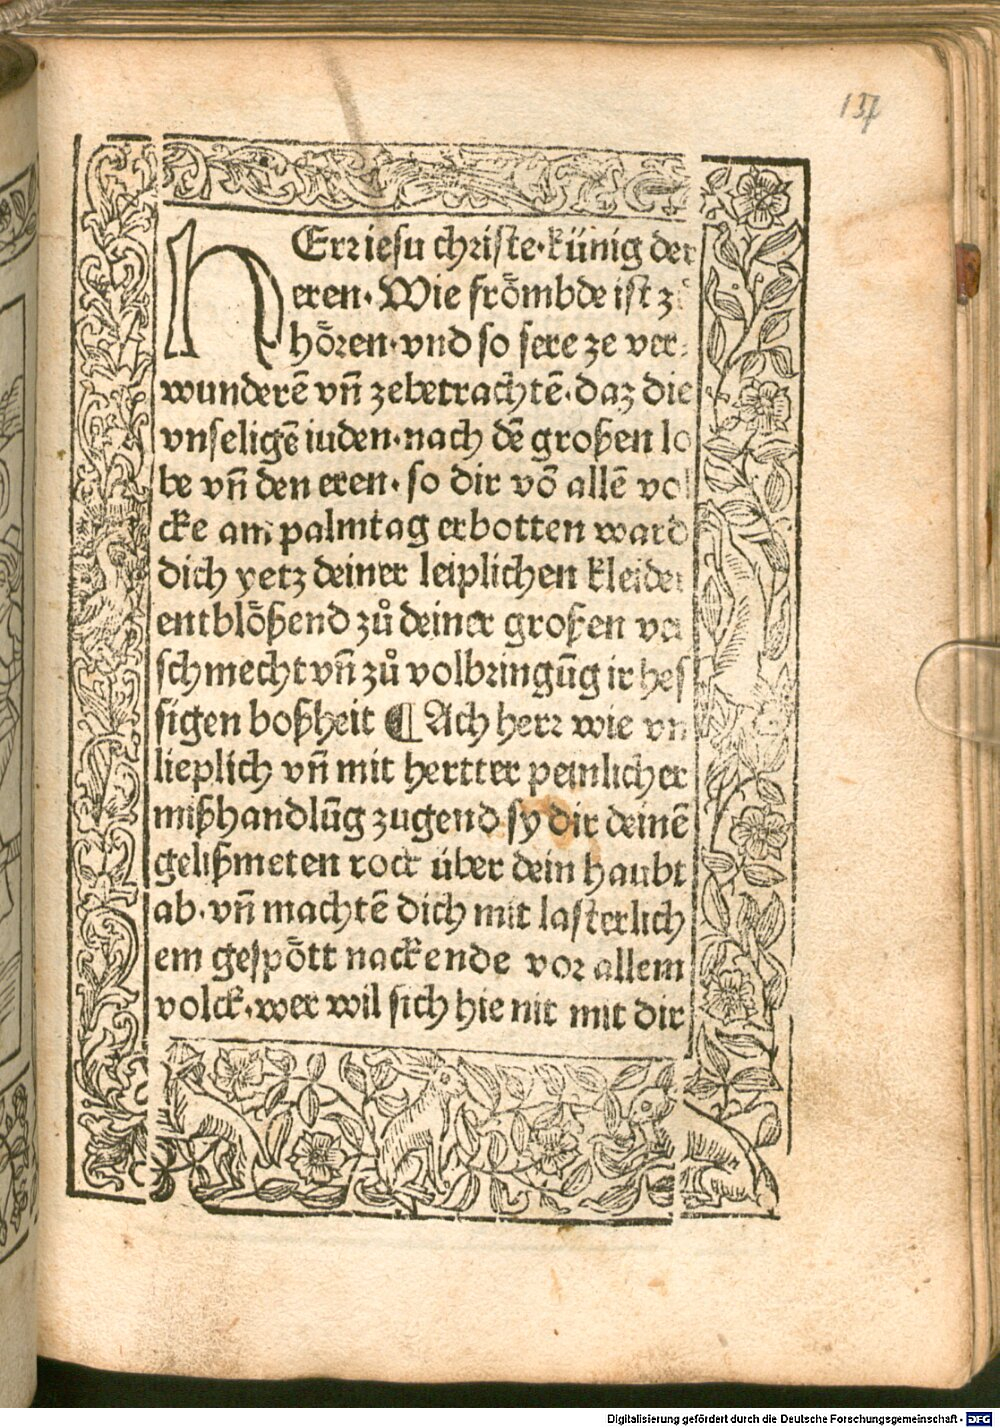 137
HErr iesu christe·künig der
eren·Wie frömbde ist zů
hören·vnd so sere ze ver⸗
wunderē vn̄ zebetrachtē·daz die
vnseligē iuden·nach dē großen lo
be vn̄ den eren·so dir vō allē vol
cke am palmtag erbotten ward
dich yetz deiner leiplichen kleider
entblößend zů deiner großen ver
schmecht vn̄ zů volbringūg ir hes
sigen boßheit ¶ Ach herr wie vn
lieplich vn̄ mit hertter peinlicher
mißhandlūg zugend sy dir deinē
gelißmeten rock über dein haubt
ab·vn̄ machtē dich mit lasterlich
em gespött nackende vor allem
volck·wer wil sich hie nit mit dir
Digitalisierung gefördert durch die Deutsche Forschungsgemeinschaft - DFG